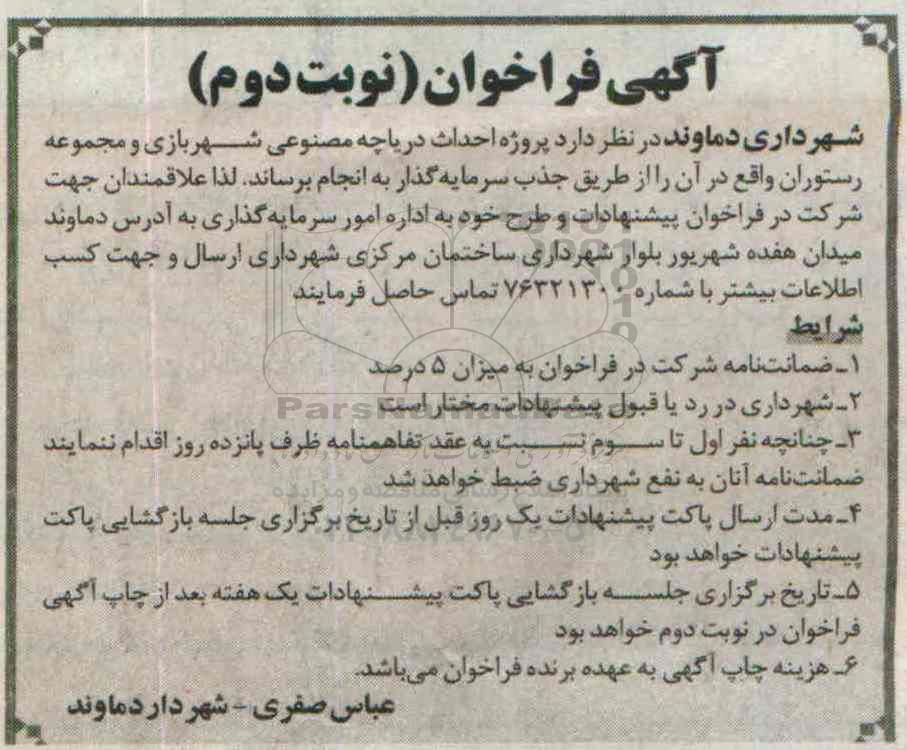 آگهی فراخوان (نوبت دوم)
شهرداری دماوند در نظر دارد پروژه احداث دریاچه مصنوعی شهربازی و مجموعه
رستوران واقع در آن را از طریق جذب سرمایه‌گذار به انجام برساند. لذا علاقمندان جهت
شرکت در فراخوان پیشنهادات و طرح خود به اداره امور سرمایه‌گذاری به آدرس دماوند
میدان هفده شهریور بلوار شهرداری ساختمان مرکزی شهرداری ارسال و جهت کسب
اطلاعات بیشتر با شماره ۷۶۳۲۱۳۰۰ تماس حاصل فرمایند
شرایط
۱ـ ضمانت‌نامه شرکت در فراخوان به میزان ۵ درصد
۲ـ شهرداری در رد یا قبول پیشنهادات مختار است
۳ـ چنانچه نفر اول تا سوم نسبت به عقد تفاهمنامه ظرف پانزده روز اقدام ننمایند
ضمانت‌نامه آنان به نفع شهرداری ضبط خواهد شد
۴ـ مدت ارسال پاکت پیشنهادات یک روز قبل از تاریخ برگزاری جلسه بازگشایی پاکت
پیشنهادات خواهد بود
۵ـ تاریخ برگزاری جلسه بازگشایی پاکت پیشنهادات یک هفته بعد از چاپ آگهی
فراخوان در نوبت دوم خواهد بود
۶ـ هزینه چاپ آگهی به عهده برنده فراخوان می‌باشد.
عباس صفری - شهردار دماوند